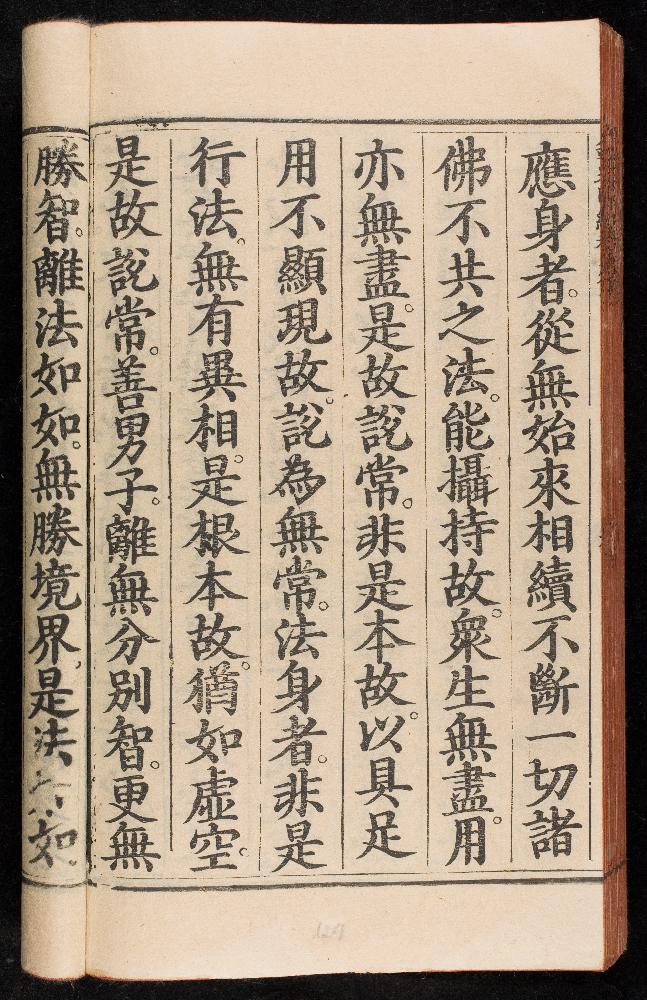 應身者。從無始來相續不斷一切諸
佛不共之法。能攝持故。衆生無盡。用
亦無盡。是故說常。非是本故。以具足
用不顯現故。說為無常。法身者。非是
行法。無有異相。是根本故。猶如虛空。
是故說常。善男子。離無分別智。更無
勝智。離法如如。無勝境界。是法如